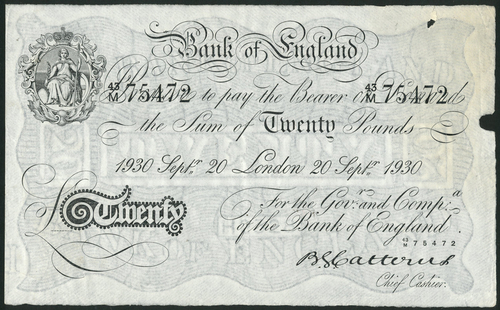 Bank of England
43/M 75472 43/M 75472
to pay the Bearer on Demand
the Sum of Twenty Pounds
1930 Septr. 20 London 20 Septr. 1930
For the Govr. and Compa.
of the Bank of England
£ Twenty
43/M 75472
B G Catterns
Chief Cashier.